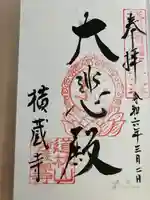 奉拝
令和六年三月二日
大悲殿
横蔵寺